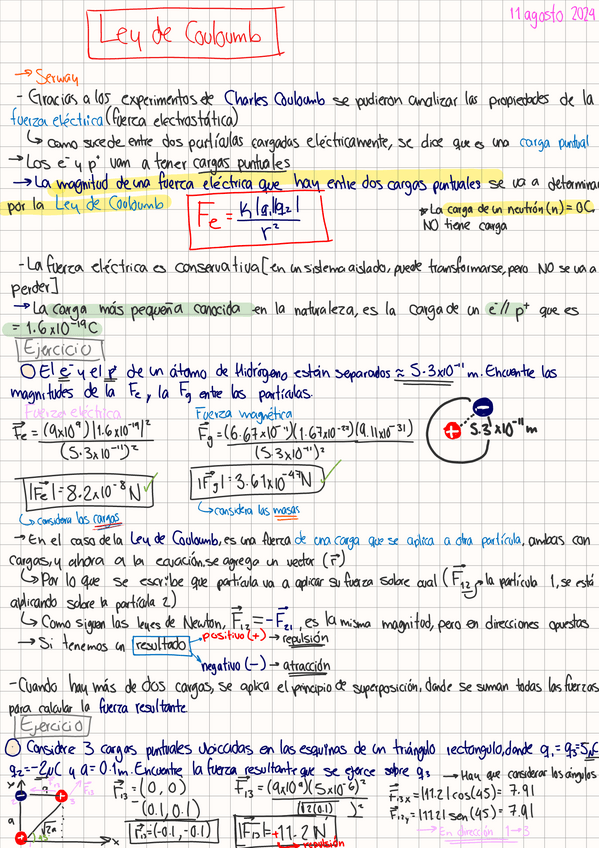 11 agosto 2024
Ley de Couloumb
→ Serway
- Gracias a los experimentos de Charles Couloumb se pudieron analizar las propiedades de la
fuerza eléctrica (fuerza electrostática)
↳ como sucede entre dos partículas cargadas eléctricamente, se dice que es una carga puntual
→ Los e⁻ y p⁺ van a tener cargas puntuales
→ La magnitud de una fuerza eléctrica que hay entre dos cargas puntuales se va a determinar
por la Ley de Cooloumb
Fe = K|q₁||q₂| / r²
* La carga de un neutrón (n) = 0C,
NO tiene carga
- La fuerza eléctrica es conservativa [en un sistema aislado, puede transformarse, pero NO se va a
perder]
→ La carga más pequeña conocida en la naturaleza, es la carga de un e⁻// p⁺ que es
= 1.6x10⁻¹⁹C
Ejercicio
○ El e⁻ y el p⁺ de un átomo de Hidrógeno están separados ≈ 5.3x10⁻¹¹ m. Encuentre las
magnitudes de la Fe, y la Fg entre las partículas.
Fuerza eléctrica
Fuerza magnética
Fe = (9x10⁹)|1.6x10⁻¹⁹|² / (5.3x10⁻¹¹)²
Fg = (6.67x10⁻¹¹)(1.67x10⁻²⁷)(9.11x10⁻³¹) / (5.3x10⁻¹¹)²
5.3x10⁻¹¹ m
|Fe| = 8.2x10⁻⁸ N ✓
|Fg| = 3.61x10⁻⁴⁷N ✓
↳ considera las cargas
↳ considera las masas
→ En el caso de la Ley de Couloumb, es una fuerza de una carga que se aplica a otra partícula, ambas con
cargas, y ahora a la ecuación, se agrega un vector (r⃗)
↳ Por lo que se escribe que partícula va a aplicar su fuerza sobre cual (F⃗₁₂ → la partícula 1, se está
aplicando sobre la partícula 2)
↳ Como siguen las leyes de Newton, F⃗₁₂ = -F⃗₂₁, es la misma magnitud, pero en direcciones opuestas
→ Si tenemos un resultado
positivo (+) → repulsión
negativo (−) → atracción
- Cuando hay más de dos cargas, se aplica el principio de superposición, donde se suman todas las fuerzas
para calcular la fuerza resultante
Ejercicio
○ Considere 3 cargas puntuales ubicadas en las esquinas de un triángulo rectangulo, donde q₁ = q₃ = 5μC
q₂ = -2μC y a = 0.1m. Encuentre la fuerza resultante que se ejerce sobre q₃
→ Hay que considerar los ángulos
y
a
F₁₃
a
√2a
45
x
r⃗₁₃ = (0, 0)
- (0.1, 0.1)
r⃗₁₃ = (-0.1, -0.1)
F⃗₁₃ = (9x10⁹)(5x10⁻⁶)² / (√2(0.1))²
|F⃗₁₃| = +11.2 N
repulsión
F⃗₁₃ₓ = |11.2| cos(45) = 7.91
= |11.2| sen(45) = 7.91
→ En dirección 1→3